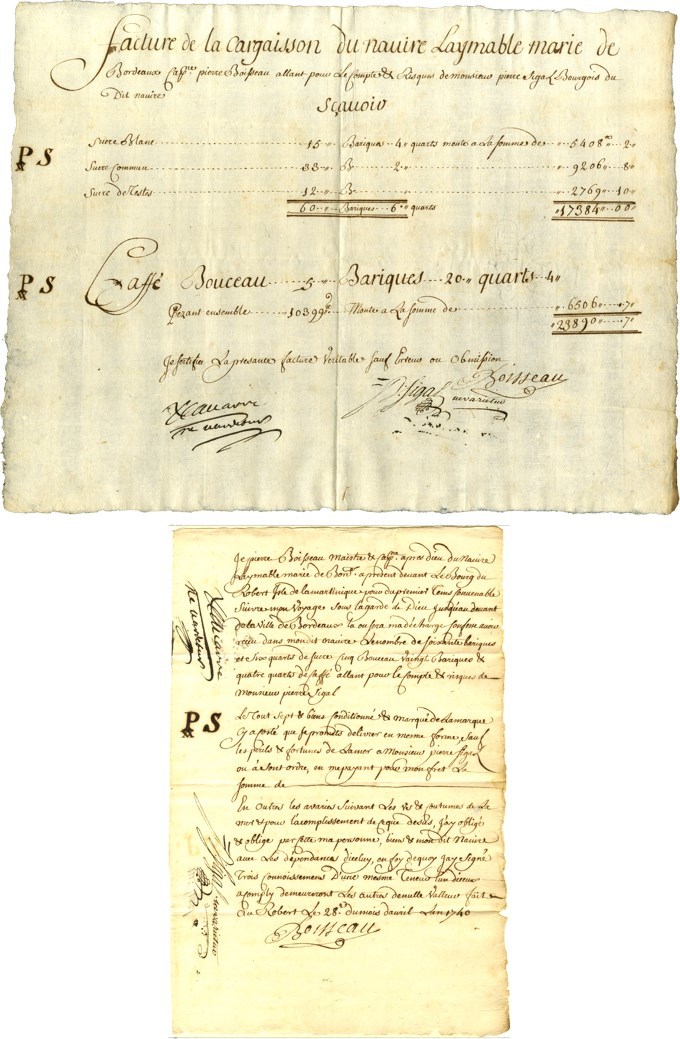 facture de la Cargaisson du navire Laymable marie de
Bordeaux Cappne pierre Boisseau allant pour Le Compte & Risques de monsieur pierre Sigal Bourgois du
Dit navire
Sçauoir
P S
Sucre Blanc 15 " Bariques 4 " quarts monte a La somme de " 5408 " 2 "
Sucre Commun 33 " B 2 " " 9206 " 8 "
Sucre de Testes 12 " B " 2769 " 10 "
60 " Bariques 6 " quarts " 17384 " 00 "
P S
Caffé Bouceau 5 " Bariques 20 " quarts 4 "
Pezant ensemble 10399 " Monte a La somme de " 6506 " 7 "
" 23890 " 7 "
Je sertifie La presante facture Veritable sauf Erreur ou Obmission
Sigal Boisseau
ne varietur
ne varietur
Je pierre Boisseau Maistre & Cappe apres dieu du Navire
Laymable marie de Bordx a presant devant Le Bourg du
Robert Isle de la martinique pour du premier Tems Conuenable
Suivre mon Voyage sous la garde de Dieu Jusqu'au devant
de la Ville de Bordeaux la ou sera ma décharge Confesse auoir
reçeu dans mondit navire Le nombre de soixante bariques
et six quarts de sucre Cinq Bouceau Vaingt Bariques &
quatre quarts de Caffé allant pour le Compte & risques de
Monsieur pierre Sigal
P S
Le Tout sept & bien Conditionné & marqué de La marque
Cy a costé que Je promets delivrer en mesme forme, sauf
les perils & fortunes de La mer a Monsieur pierre Sigal
ou a son ordre, en me payant pour mon fret La
somme de
En outre les avaries suivant Les us & coutumes de La
mer & pour lacomplissement de ce que desus, J'ay obligé
& oblige par cette ma personne, biens & mon dit Navire
avec Les dépendances dicelluy, en foy de quoy J'ay signé
Trois Connoissemens D'une mesme Teneur L'un diceux
acomply demeureront Les autres de nulle Valleur fait
Au Robert Le 28 du mois d'avril Lan 1740
Boisseau
ne varietur
Sigal ne varietur